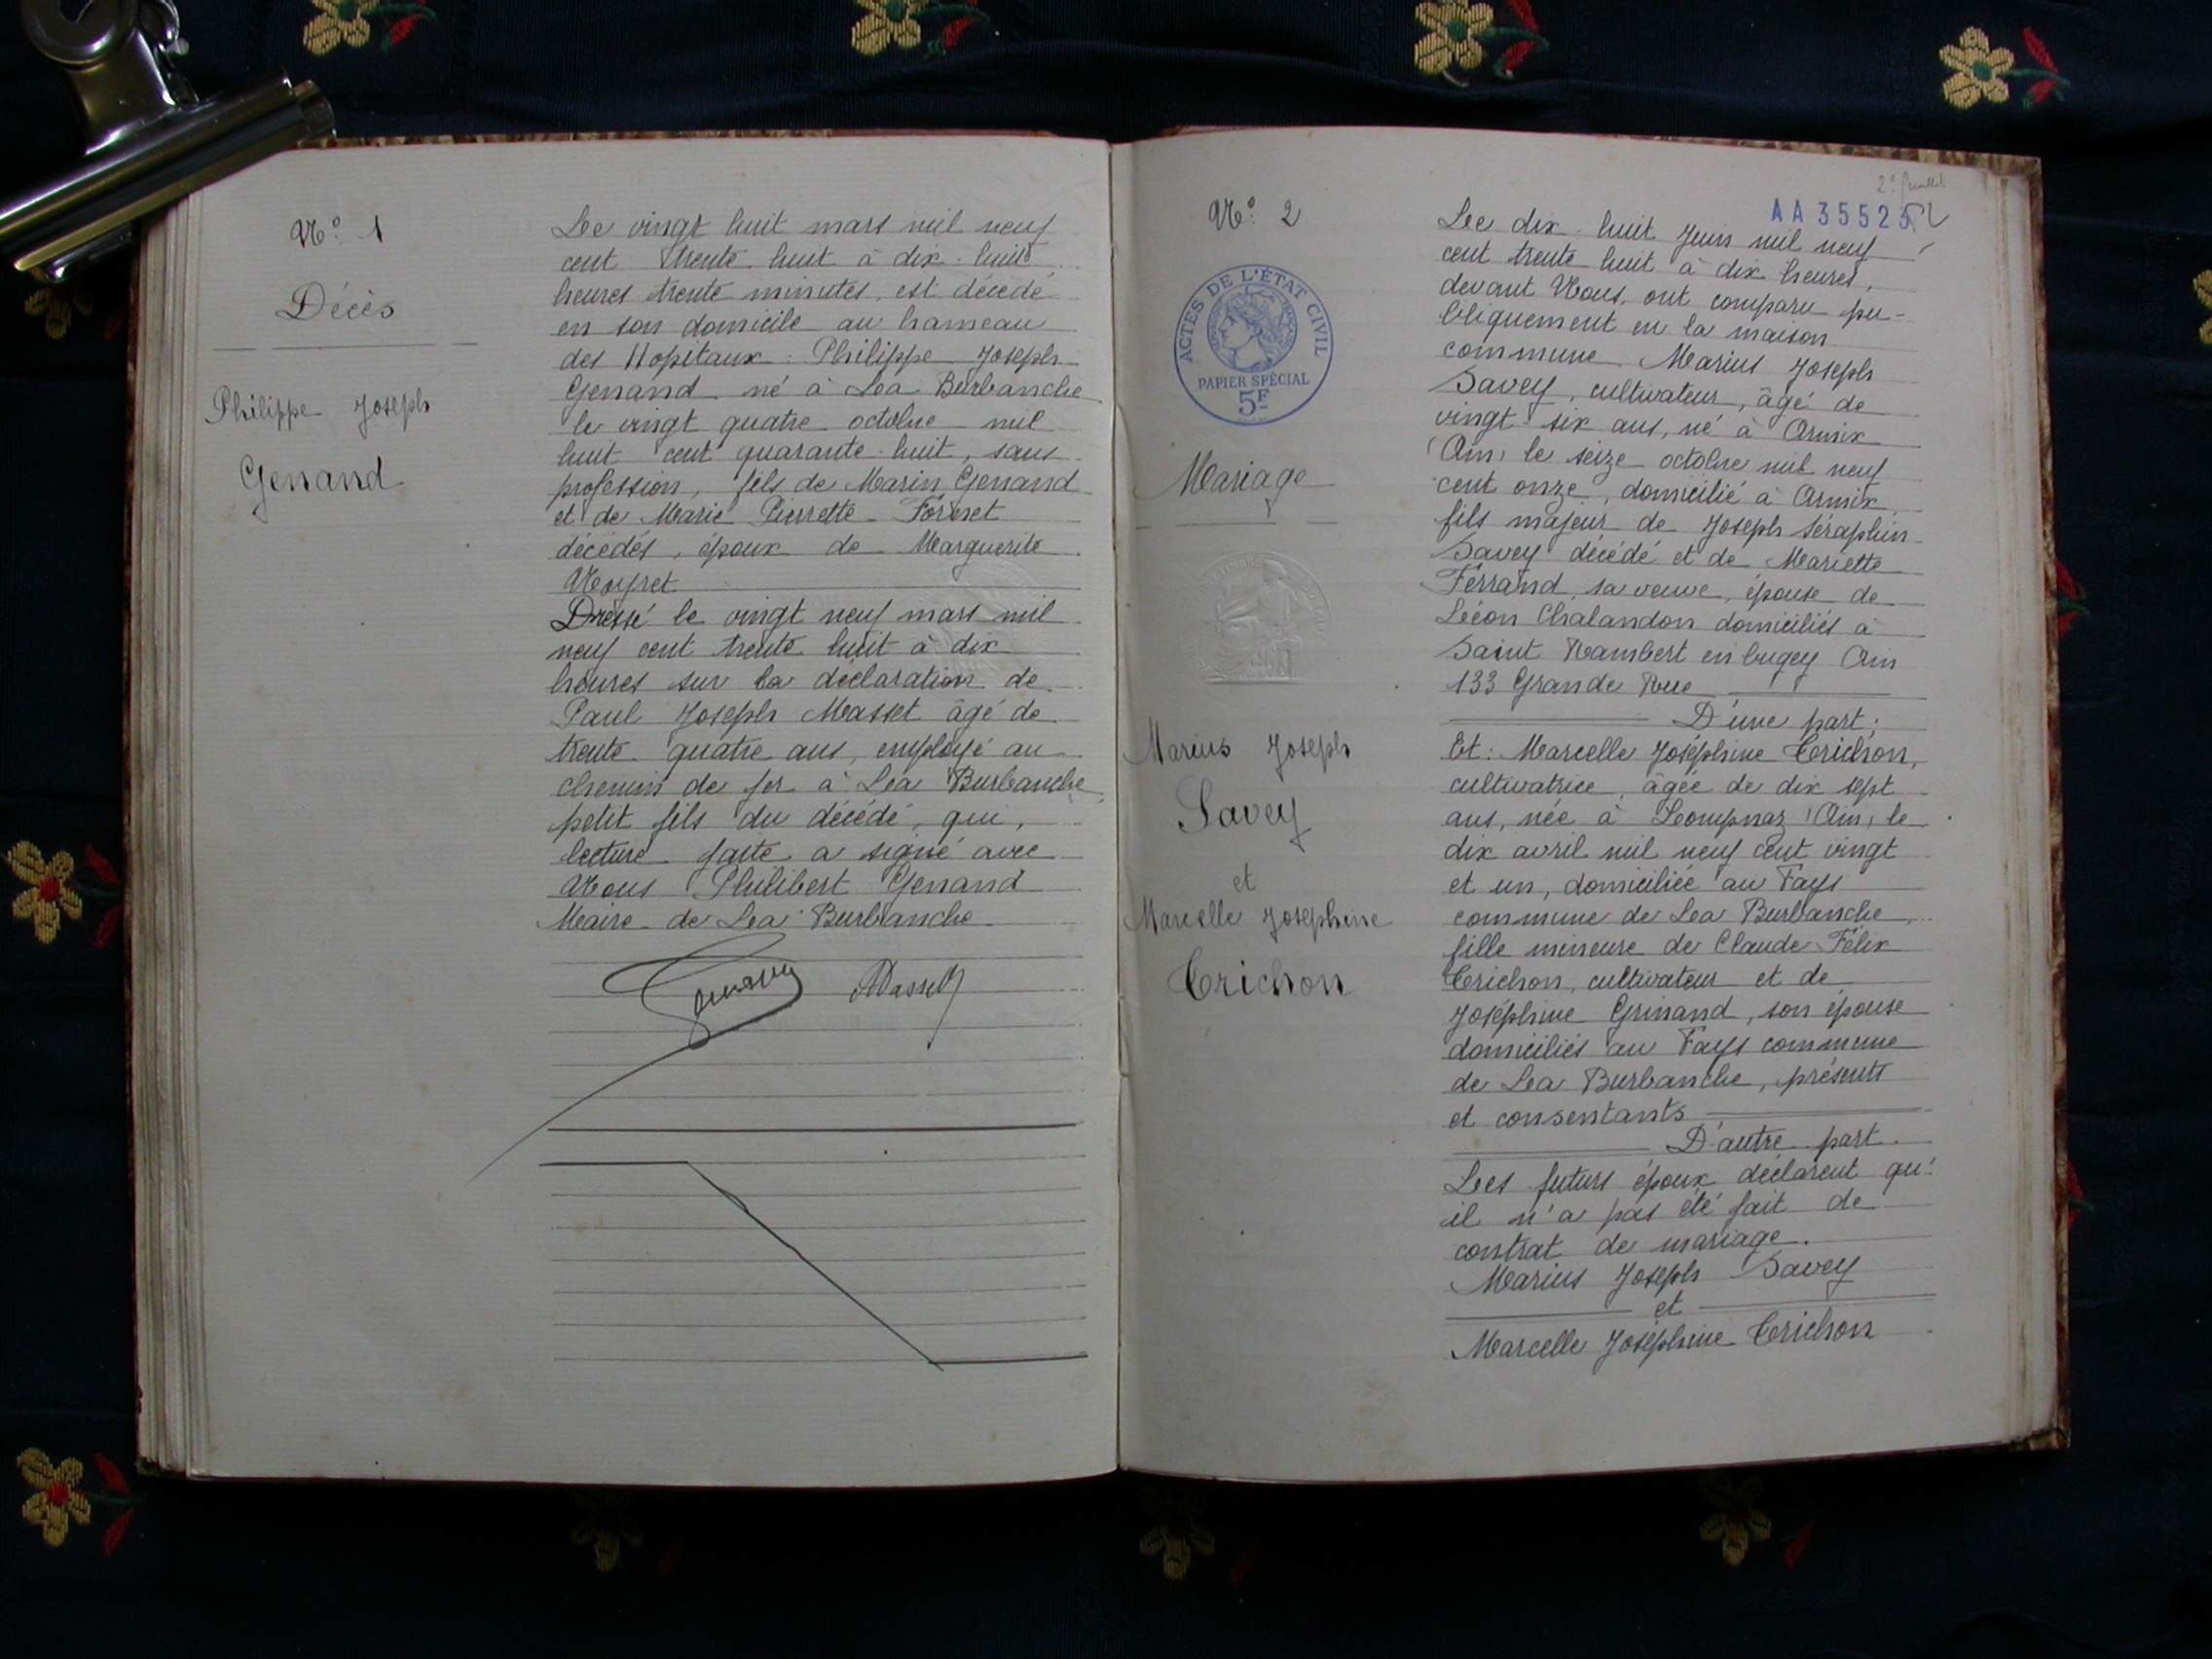 N° 1
Décès
Philippe Joseph
Genand
Le vingt huit mars mil neuf
cent trente huit à dix-huit
heures trente minutes, est décédé
en son domicile au hameau
des Hopitaux : Philippe Joseph
Genand né à La Burbanche
le vingt quatre octobre mil
huit cent quarante-huit, sans
profession, fils de Marin Genand
et de Marie Pierrette
décédés, époux de Marguerite
Neyret
Dressé le vingt neuf mars mil
neuf cent trente huit à dix
heures sur la déclaration de
Paul Joseph Masset âgé de
trente quatre ans, employé au
chemin de fer à La Burbanche
petit fils du décédé, qui,
lecture faite a signé avec
Nous Philibert Genand
Maire de La Burbanche
Genand Masset
2e feuillet
AA 35523
N° 2
ACTES DE L'ÉTAT CIVIL
PAPIER SPÉCIAL
5F
Mariage
Marius Joseph
Savey
et
Marcelle Joséphine
Crichon
Le dix-huit Juin mil neuf
cent trente huit à dix heures,
devant Nous, ont comparu pu-
bliquement en la maison
commune Marius Joseph
Savey, cultivateur, âgé de
vingt six ans, né à Armix
(Ain) le seize octobre mil neuf
cent onze, domicilié à Armix
fils majeur de Joseph Séraphin
Savey décédé et de Mariette
Ferrand, sa veuve, épouse de
Léon Chalandon domiciliés à
Saint Rambert en bugey Ain
133 Grande Rue
D'une part;
Et : Marcelle Joséphine Crichon,
cultivatrice, âgée de dix sept
ans, née à Lompnaz (Ain) le
dix avril mil neuf cent vingt
et un, domiciliée au Fays
commune de La Burbanche,
fille mineure de Claude Félix
Crichon, cultivateur et de
Joséphine Grinand, son épouse
domiciliés au Fays commune
de La Burbanche, présents
et consentants
D'autre part.
Les futurs époux déclarent qu'
il n'a pas été fait de
contrat de mariage.
Marius Joseph Savey
et
Marcelle Joséphine Crichon